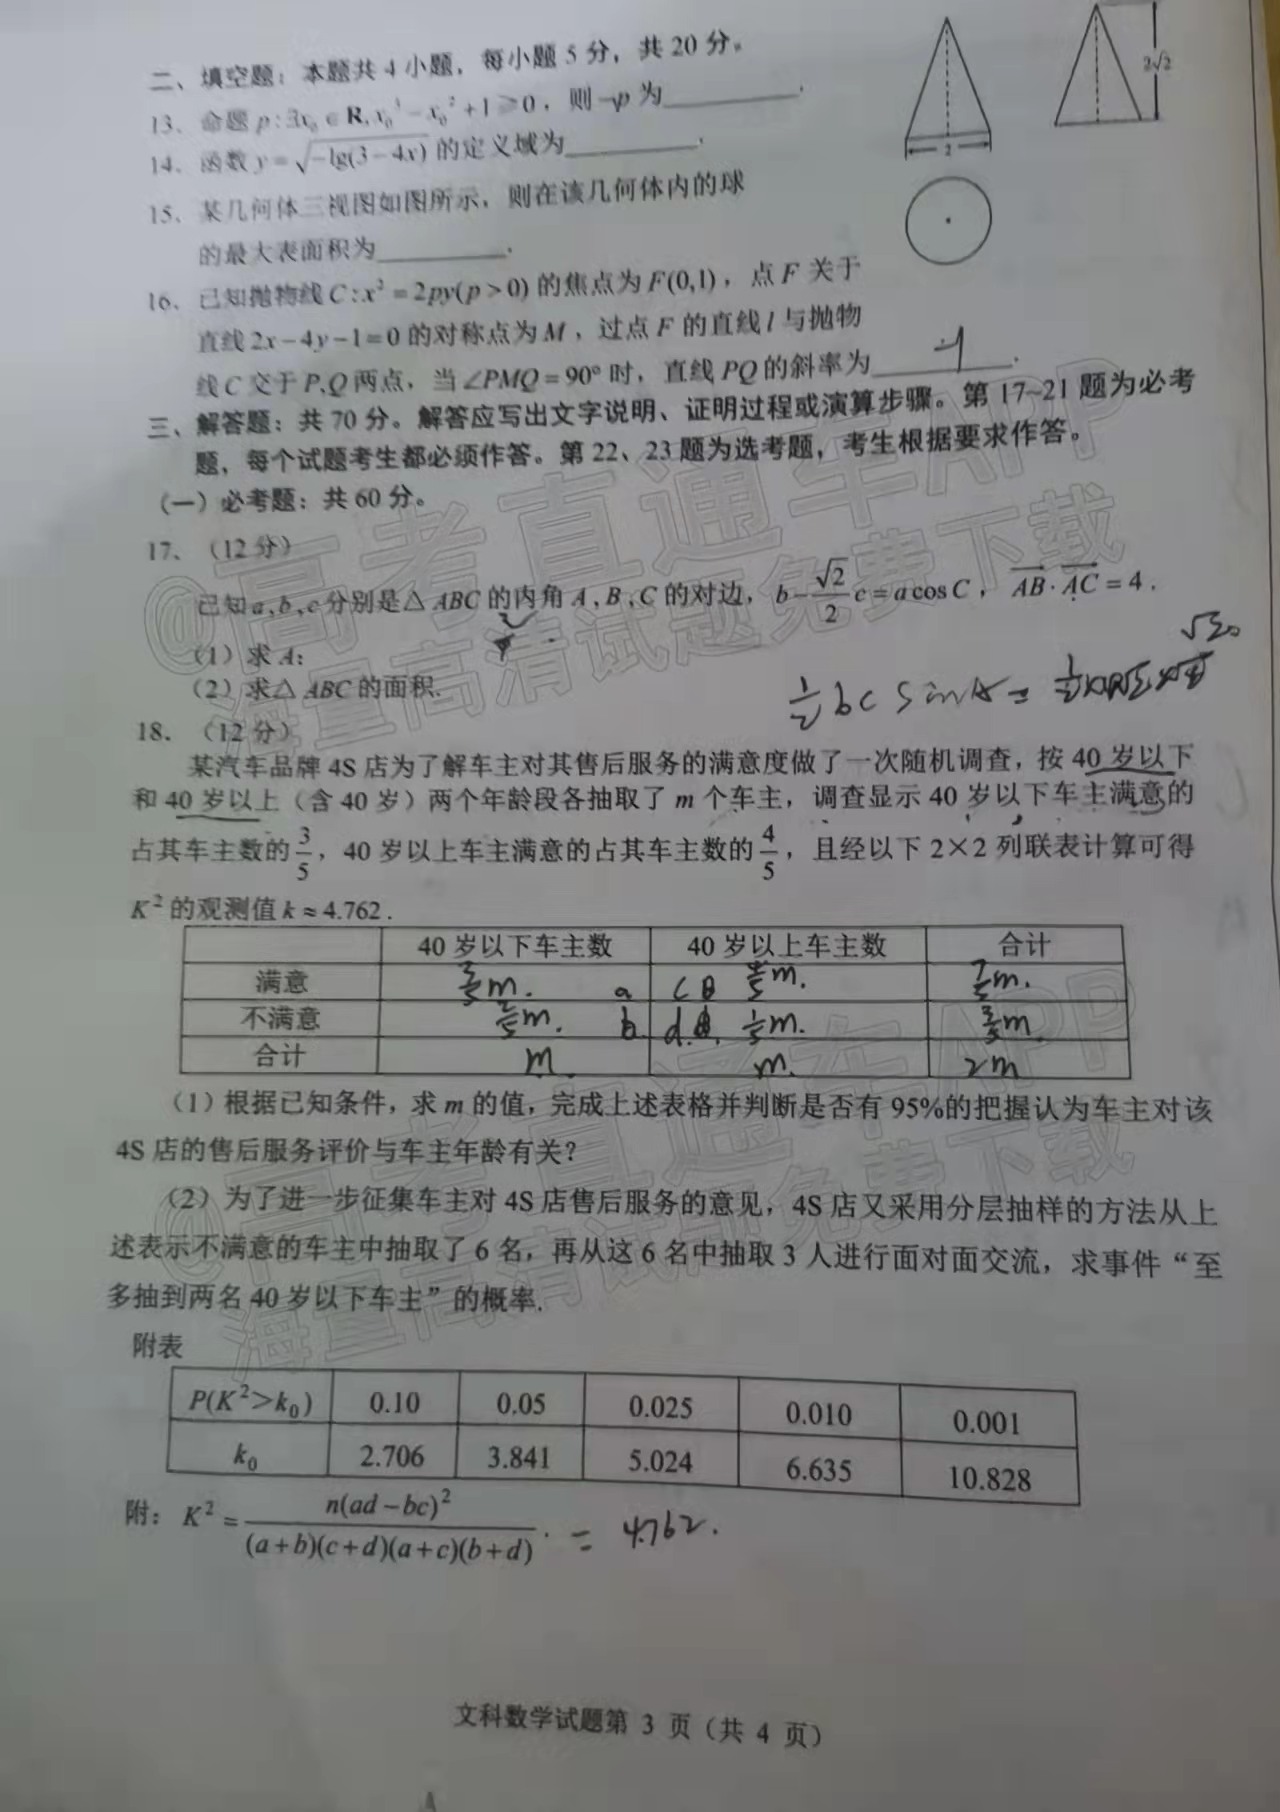 二、填空题：本题共 4 小题，每小题 5 分，共 20 分。
13、命题 p:∃x₀∈R, x₀³−x₀²+1≥0，则¬p 为________.
14、函数 y=√(−lg(3−4x)) 的定义域为________.
15、某几何体三视图如图所示，则在该几何体内的球
的最大表面积为________.
2
2√2
16、已知抛物线 C:x²=2py(p>0) 的焦点为 F(0,1)，点 F 关于
直线 2x−4y−1=0 的对称点为 M，过点 F 的直线 l 与抛物
线 C 交于 P,Q 两点，当∠PMQ=90° 时，直线 PQ 的斜率为________.
三、解答题：共 70 分。解答应写出文字说明、证明过程或演算步骤。第 17~21 题为必考
题，每个试题考生都必须作答。第 22、23 题为选考题，考生根据要求作答。
（一）必考题：共 60 分。
17、（12 分）
已知 a,b,c 分别是△ABC 的内角 A,B,C 的对边，b−(√2/2)c=a cos C，AB·AC=4.
（1）求 A;
（2）求△ABC 的面积.
½bc sinA =
18、（12 分）
某汽车品牌 4S 店为了解车主对其售后服务的满意度做了一次随机调查，按 40 岁以下
和 40 岁以上（含 40 岁）两个年龄段各抽取了 m 个车主，调查显示 40 岁以下车主满意的
占其车主数的 3/5，40 岁以上车主满意的占其车主数的 4/5，且经以下 2×2 列联表计算可得
K² 的观测值 k≈4.762.
40 岁以下车主数 40 岁以上车主数 合计
满意 3/5 m. a c 4/5 m. 7/5 m.
不满意 2/5 m. b d. 1/5 m. 3/5 m.
合计 m m. 2m
（1）根据已知条件，求 m 的值，完成上述表格并判断是否有 95%的把握认为车主对该
4S 店的售后服务评价与车主年龄有关？
（2）为了进一步征集车主对 4S 店售后服务的意见，4S 店又采用分层抽样的方法从上
述表示不满意的车主中抽取了 6 名，再从这 6 名中抽取 3 人进行面对面交流，求事件“至
多抽到两名 40 岁以下车主”的概率.
附表
P(K²>k₀) 0.10 0.05 0.025 0.010 0.001
k₀ 2.706 3.841 5.024 6.635 10.828
附：K²=n(ad−bc)²/((a+b)(c+d)(a+c)(b+d)). = 4.762.
文科数学试题第 3 页（共 4 页）
@高考直通车APP
海量高清试题免费下载
@高考直通车APP
海量高清试题免费下载